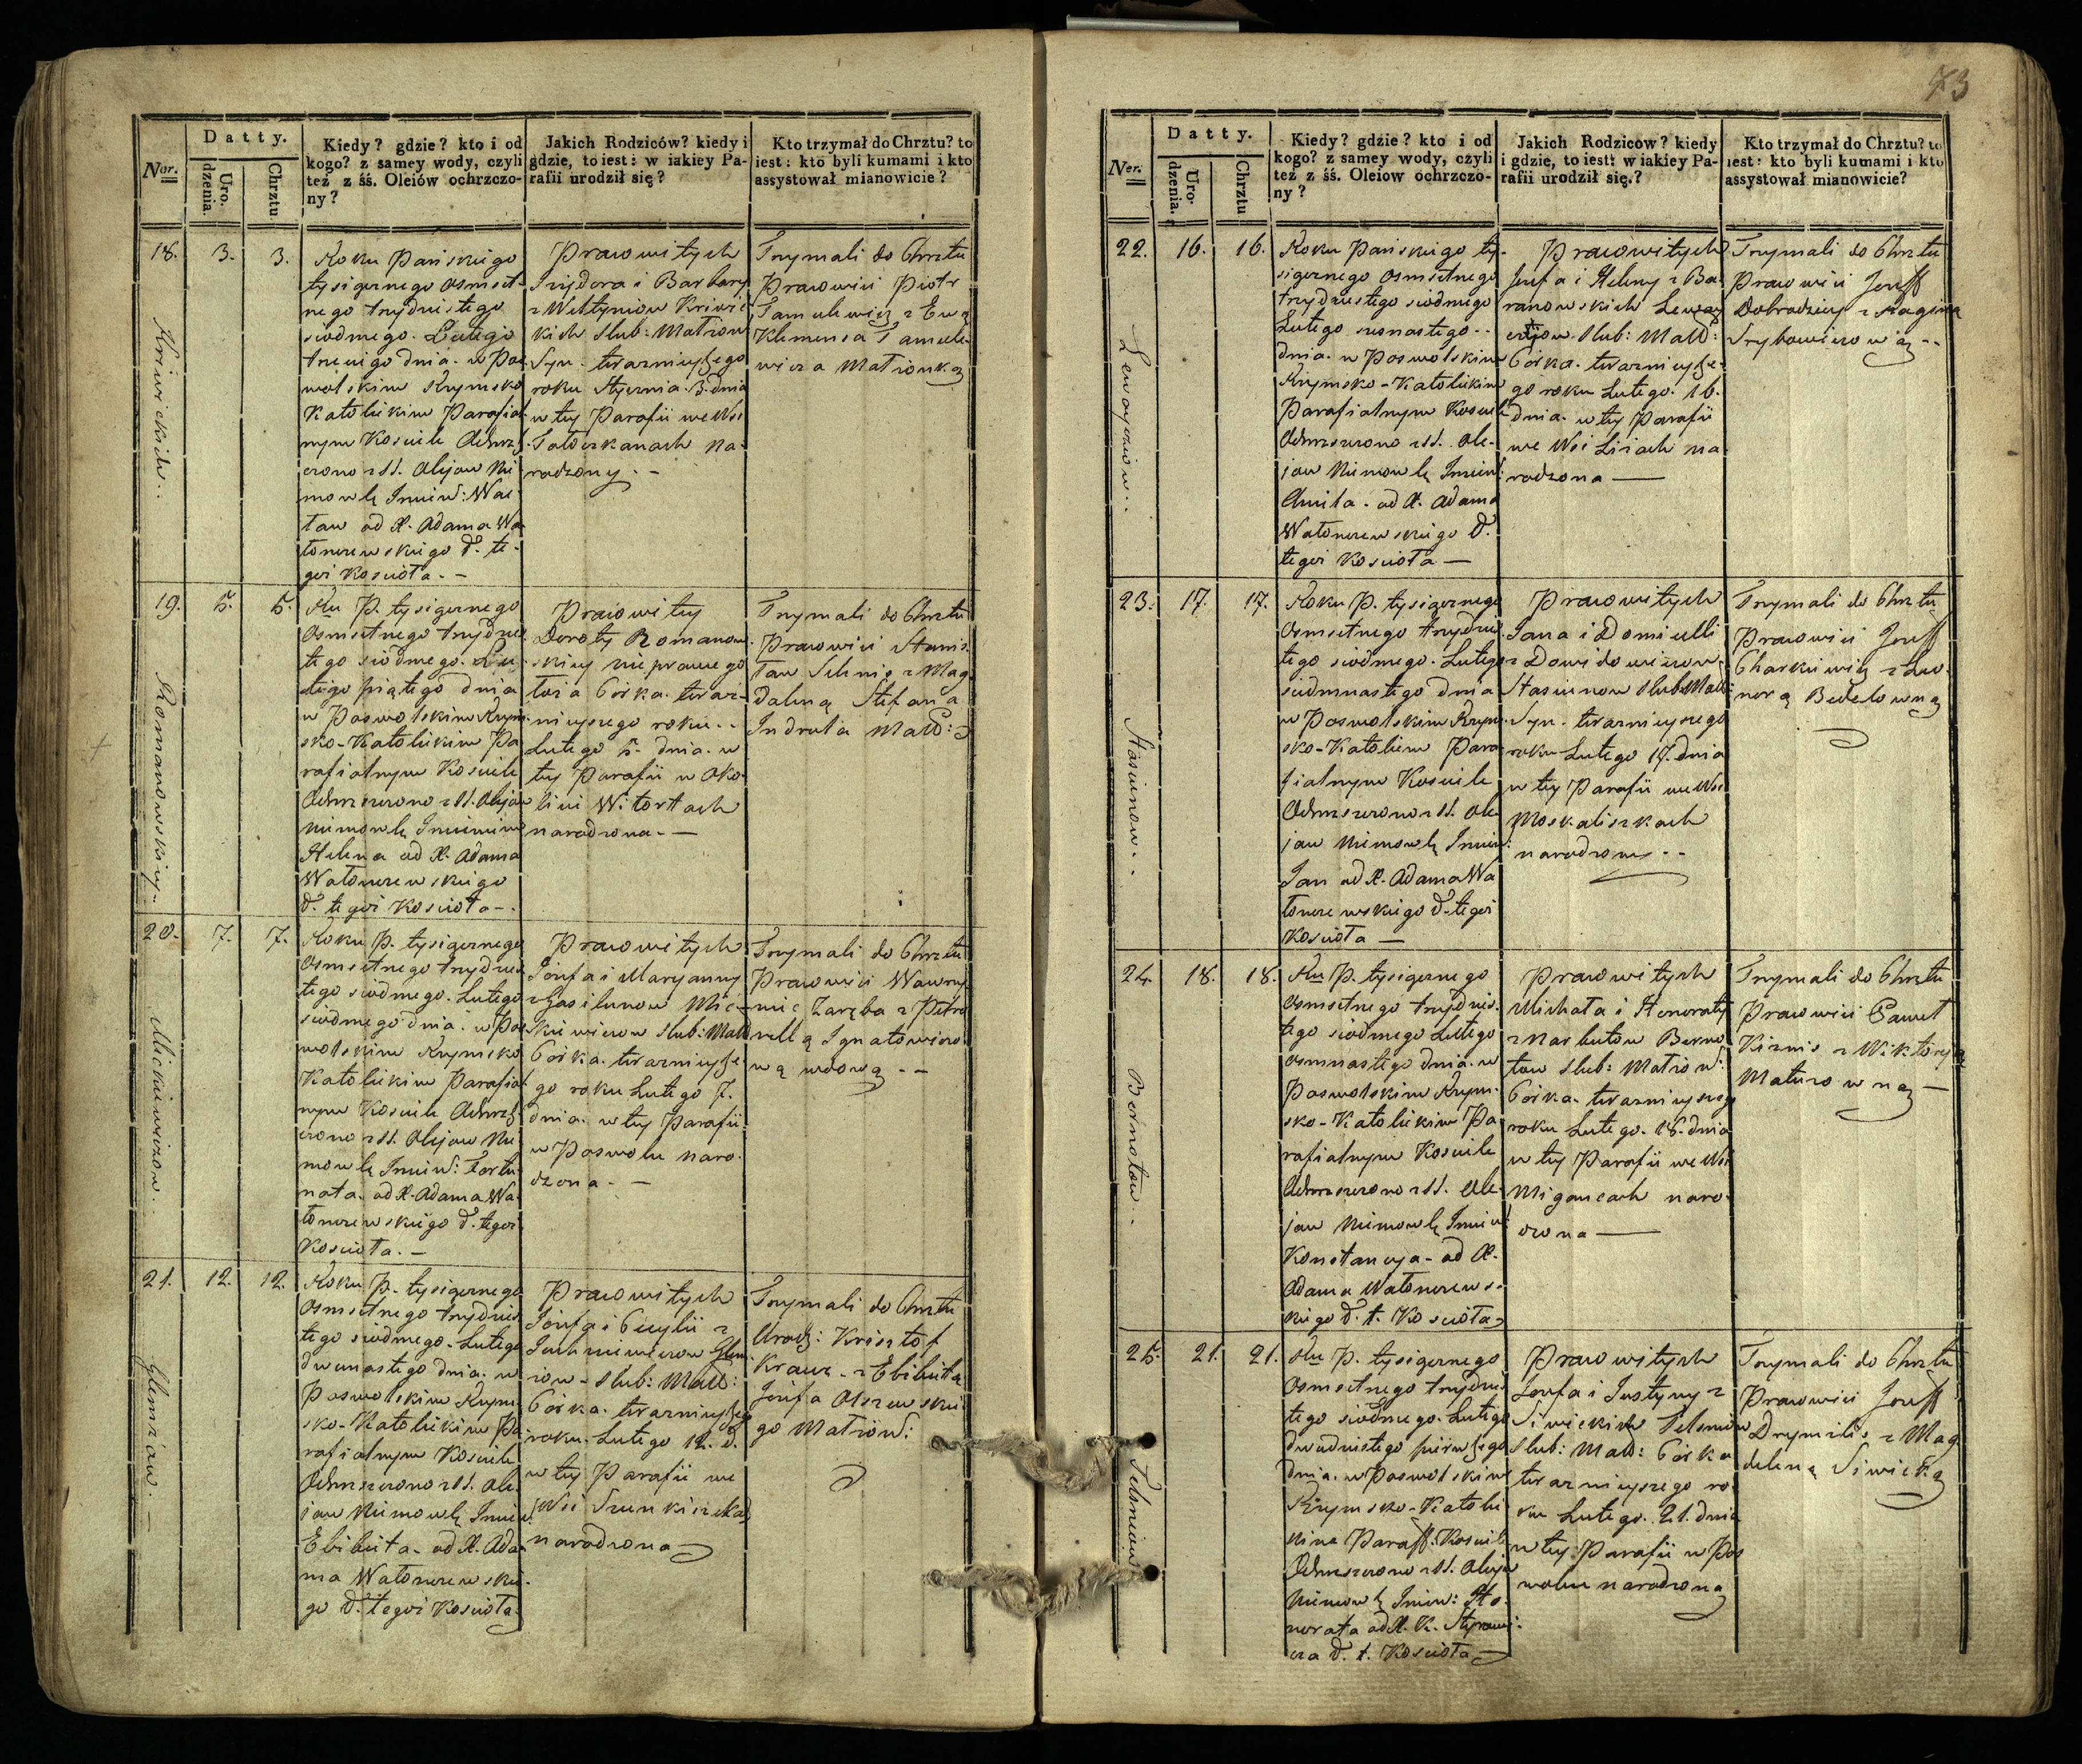 73
Datty.
Ner.
Uro-
dzenia.
Chrztu
Kiedy? gdzie? kto i od
kogo? z samey wody, czyli
też z śś. Oleiów ochrzczo-
ny?
Jakich Rodziców? kiedy i
gdzie, to iest: w iakiey Pa-
rafii urodził się?
Kto trzymał do Chrztu? to
iest: kto byli kumami i kto
assystował mianowicie?
18.
3.
3.
Kriwickich..
Roku Pańskiego
tysiącznego osmset-
nego trzydziestego
siodmego. Lutego
trzeciego dnia. w Pos
wolskim Rzymsko
Katolickim Parafial
nym Kosciele Ochrz
czono z SS. Olejow Nie
mowlę Imieniem: Wac
ław od X. Adama Wa
łonczewskiego d. te
goż Kościoła. -
Prawowitych
Izydora i Barbary
z Wełtyniow Kriwic
kich Slub: Małżon
Syn. teraznieyszego
roku Stycznia. 3. dnia
w tey Parafii we Wsi
Tatoczkanach na
rodzony. -
Trzymali do Chrztu
Prawowici Piotr
Tamulewicz z Ewą
Klemensa Tamule
wicza Małżonką
19.
5.
5.
Romanowskiey.
Ru P. tysiącznego
Osmsetnego trzydzies
tego siodmego. Lu
tego piątego dnia
w Poswolskim Rzym
sko-Katolickim Pa
rafialnym Kosciele
Ochrzczono z SS. Olejow
Niemowlę Imieniem
Helena od X. Adama
Wałonczewskiego
d. tegoż Kościoła -.
Prawowitey
Doroty Romanow
skiey nieprawego
łoża Córka. teraz-
nieyszego roku..
Lutego 5. dnia. w
tey Parafii w Oko
licy Witortach
narodzona. -
Trzymali do Chrztu
Prawowici Stanis
ław Selenis z Mag
daleną Stefana
Indrula Małż:
20.
7.
7.
Mickiewiczow..
Roku P. tysiącznego
Osmsetnego trzydzies
tego siodmego. Lutego
siodmego dnia. w Pos
wolskim Rzymsko
Katolickim Parafial
nym Kosciele Ochrz
czono z SS. Olejow Nie
mowlę Imieniem: Fortu
nata. od X. Adama Wa
łonczewskiego d. tegoż
Kościoła. -
Prawowitych
Józefa i Maryanny
z Gasilunow Mic-
kiewiczow Slub: Małż
Córka. teraznieysze
go roku Lutego 7.
dnia. w tey Parafii
w Poswolu naro
dzona. -
Trzymali do Chrztu
Prawowici Wawrzy
niec Zaręba z Petro
nellą Ignatowiczo
wą wdową --
21.
12.
12.
Glemżów. -
Roku P. tysiącznego
Osmsetnego trzydzies
tego siodmego. Lutego
dwunastego dnia. w
Poswolskim Rzym
sko-Katolickim Pa
rafialnym Kosciele
Ochrzczono z SS. Ole
jow Niemowlę Imien
Elżbieta. od X. Ada
ma Wałonczewskie
go d. tegoż Kościoła
Prawowitych
Józefa i Cecylii z
Juchniewiczow Glem
żow - Slub: Małż:
Córka. teraznieyszego
roku. Lutego 12. d.
w tey Parafii we
Wsi Szunkiszkach
narodzona
Trzymali do Chrztu
Urodz: Krisztof
Krauz. z Elżbietą
Jozefa Olszewskie
go Małżon:
Datty.
Ner.
Uro-
dzenia.
Chrztu
Kiedy? gdzie? kto i od
kogo? z samey wody, czyli
też z śś. Oleiow ochrzczo-
ny?
Jakich Rodziców? kiedy
i gdzie, to iest: w iakiey Pa-
rafii urodził się.?
Kto trzymał do Chrztu? to
iest: kto byli kumami i kto
assystował mianowicie?
22.
16.
16.
Roku Pańskiego ty-
siącznego osmsetnego
trzydziestego siódmego
Lutego szesnastego..
dnia. w Poswolskim
Rzymsko-Katolickim
Parafialnym Kosciele
Ochrzczono z SS. Ole-
jow Niemowlę Imien
Aniela. od X. Adama
Wałonczewskiego d.
tegoż Kościoła -
Prawowitych
Jozefa i Heleny z Ba
ranowskich
Slub: Małż:
Córka. teraznieysze-
go roku Lutego. 16.
dnia. w tey Parafii
we Wsi Liziach na
rodzona -
Trzymali do Chrztu
Prawowici Jozeff
Dobrodziey z
23.
17.
17.
Stasiunow..
Roku P. tysiącznego
Osmsetnego trzydzies
tego siodmego. Lutego
siedmnastego dnia
w Poswolskim Rzym
sko-Katolickim Para
fialnym Kosciele
Ochrzczono z SS. Ole
jow Niemowlę Imien
Jan od X. Adama Wa
łonczewskiego d. tegoż
Kościoła -
Prawowitych
Jana i Domicelli
z Dowidowiczow
Stasiunow Slub: Małż
Syn. teraznieyszego
roku Lutego 17. dnia
w tey Parafii we Wsi
Moskaliszkach
narodzony..
Trzymali do Chrztu
Prawowici Jozeff
Charkiewicz z Leo
norą Bedelowną
24.
18.
18.
Bernotow..
Ru P. tysiącznego
Osmsetnego trzydzies
tego siodmego Lutego
osmnastego dnia. w
Poswolskim Rzym-
sko-Katolickim Pa
rafialnym Kosciele
Ochrzczono z SS. Ole
jow Niemowlę Imien
Konstancya. od X.
Adama Wałonczews-
kiego d. t. Kościoła
Prawowitych
Michała i Honoraty
z Narbutow Berno
tow Slub: Małżon:
Córka. teraznieyszego
roku Lutego. 18. dnia
w tey Parafii we Wsi
Migancach naro-
dzona -
Trzymali do Chrztu
Prawowici Paweł
Kiznis z Wiktoryą
Maturowną -
25.
21.
21.
Ru P. tysiącznego
Osmsetnego trzydzies
tego siódmego. Lutego
dwudziestego pierwszego
dnia. w Poswolskim
Rzymsko-Katolic
kim Paraff: Kosciele
Ochrzczono z SS. Olejow
Niemowlę Imien: Ho
norata od X. K.
d. t. Kościoła -
Prawowitych
Jozefa i Justyny z
Siwickich
Slub: Małż: Córka
teraznieyszego ro
ku Lutego. 21. dnia
w tey Parafii w Pos
wolu narodzona
Trzymali do Chrztu
Prawowici Jozeff
Drymilis z Mag
deleną Siwicką